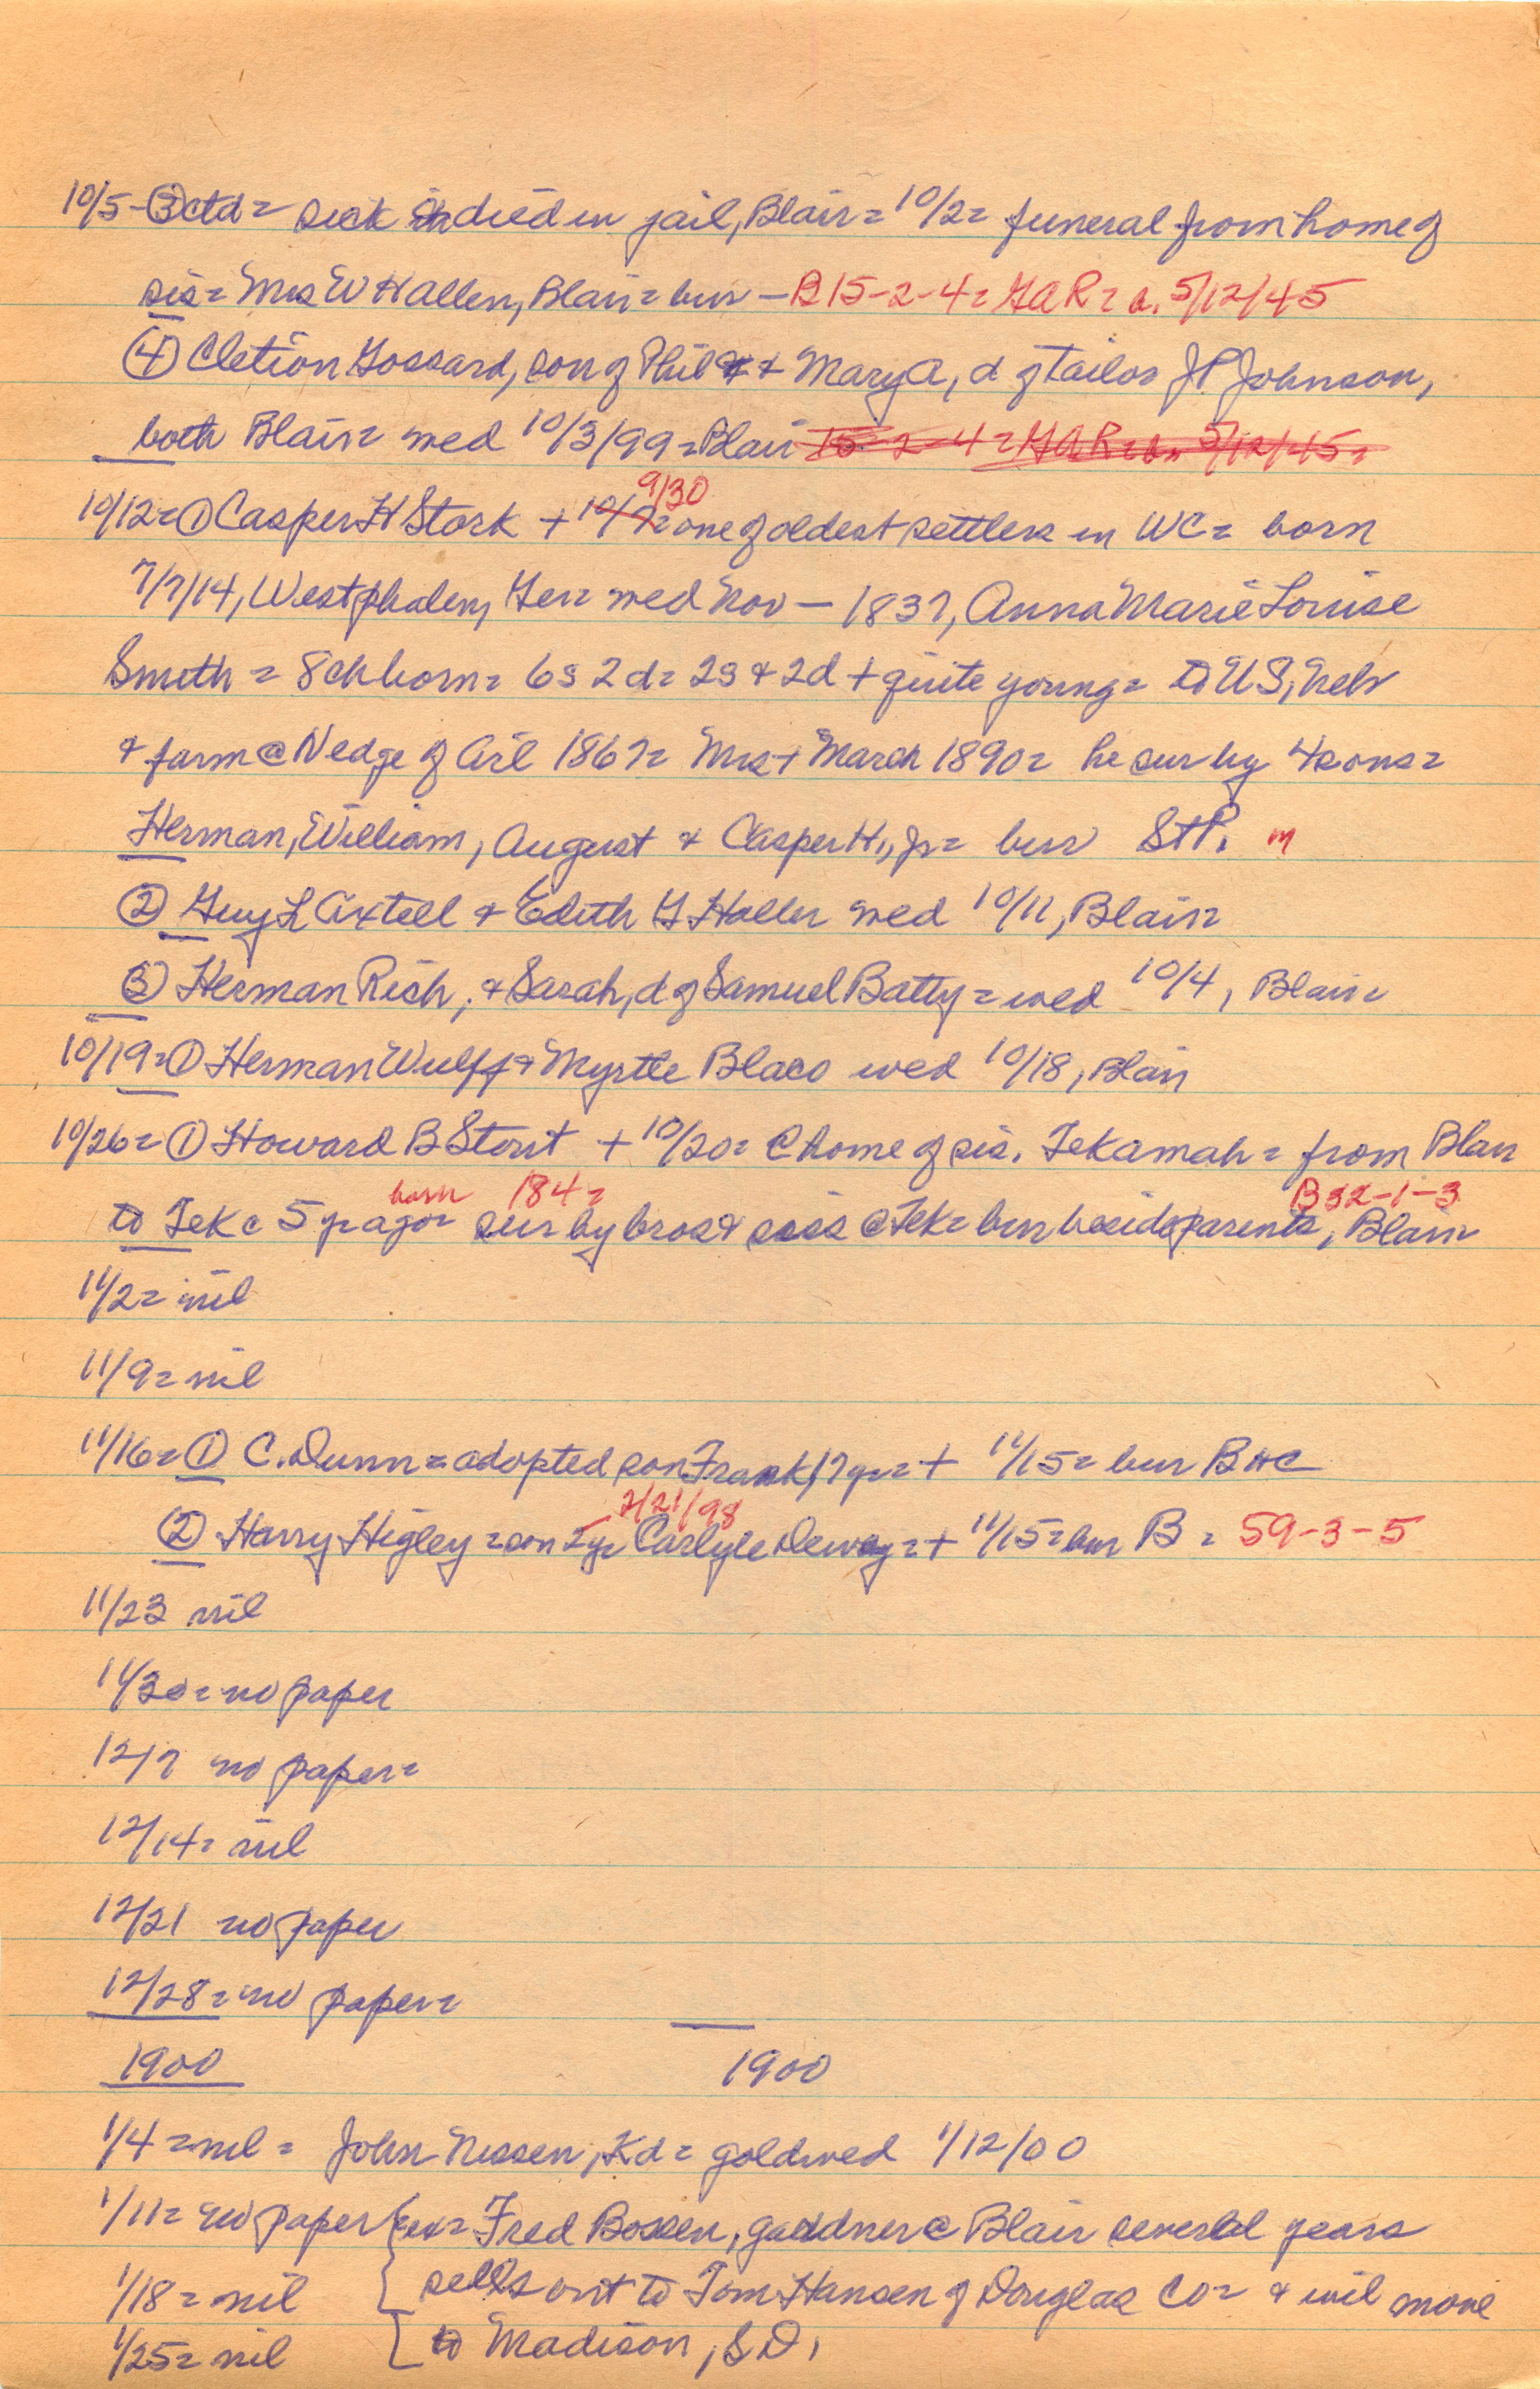 10/5-③ctd = sick & died in jail, Blair = 10/2 = funeral from home of
sis = Mrs W H Allen, Blair = bur — B 15-2-4 = GAR = b. 5/12/45
④ Cletion Gossard, son of Phil & Mary A, d of tailor J P Johnson,
both Blair = wed 10/3/99 = Blair 15-2-4 = GAR = b. 5/12/45 =
9/30
10/12 = ① Casper H Stork + 10/ = one of oldest settlers in WC = born
7/7/14, Westphalen, Ger = wed Nov — 1837, Anna Marie Louise
Smith = 8 ch born = 6s 2d = 2s & 2d + quite young = to US, Neb
& farm @ N edge of Arl 1867 = Mrs + March 1890 = he sur by 4 sons =
Herman, William, August & Casper H., Jr = bur St P. m
② Guy L Axtell & Edith G Haller wed 10/11, Blair =
③ Herman Rich, & Sarah, d of Samuel Batty = wed 10/4, Blair =
10/19 = ① Herman Wulff & Myrtle Blaco wed 10/18, Blair
10/26 = ① Howard B Stout + 10/20 = @ home of sis. Tekamah = from Blair
born 184= B 32-1-3
to Tek c 5 yr ago = sur by bros & siss @ Tek = bur beside parents, Blair
11/2 = nil
11/9 = nil
11/16 = ① C. Dunn = adopted son Frank, 17 yr = + 11/15 = bur B HC
2/21/98
② Harry Higley = son yr Carlyle Dewey = + 11/15 = bur B = 59-3-5
11/23 nil
11/30 = no paper
12/7 no paper =
12/14 = nil
12/21 no paper
12/28 = no paper =
1900 1900
1/4 = nil = John Nissen, Kd = gold wed 1/12/00
1/11 = no paper { ex = Fred Bossen, gardner @ Blair several years
1/18 = nil { sells out to Tom Hansen of Douglas Co = & will move
1/25 = nil [ to Madison, S D,